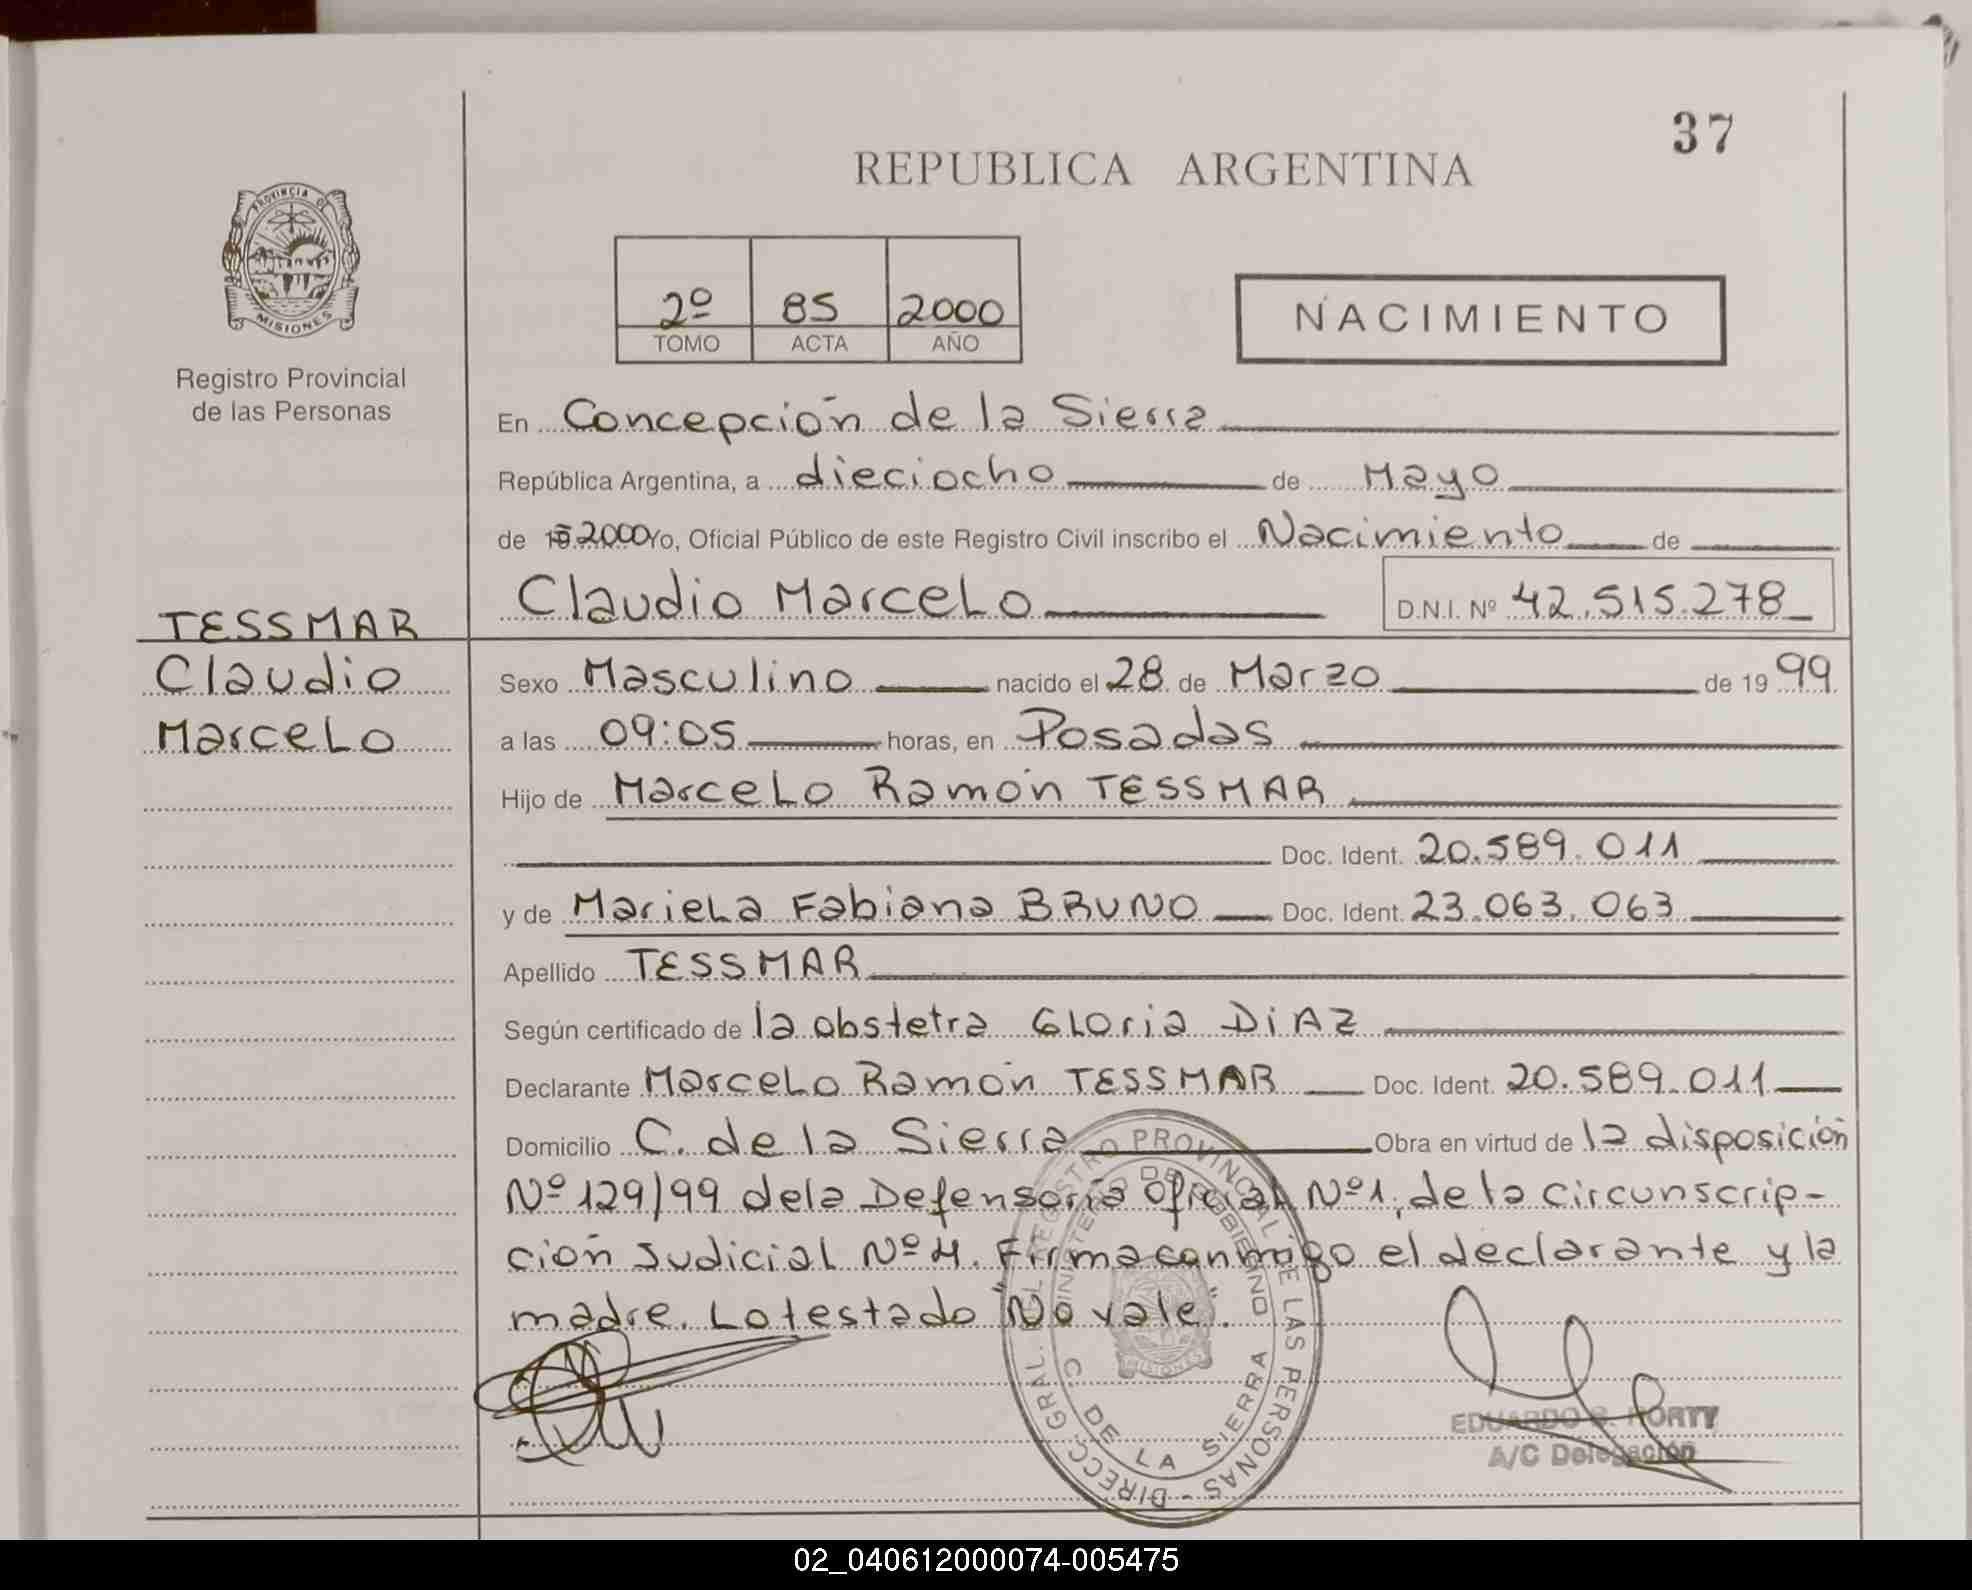 37
REPUBLICA ARGENTINA
PROVINCIA D
MISIONES
Registro Provincial
de las Personas
2º 85 2000
TOMO ACTA AÑO
NACIMIENTO
En Concepción de la Sierra
República Argentina, a dieciocho de Mayo
de 19 2000 Yo, Oficial Público de este Registro Civil inscribo el Nacimiento de
Claudio Marcelo D.N.I. Nº 42.515.278
TESSMAR
Claudio
Marcelo
Sexo Masculino nacido el 28 de Marzo de 19 99
a las 09:05 horas, en Posadas
Hijo de Marcelo Ramón TESSMAR
Doc. Ident. 20.589.011
y de Mariela Fabiana BRUNO Doc. Ident. 23.063.063
Apellido TESSMAR
Según certificado de la obstetra Gloria DiAZ
Declarante Marcelo Ramón TESSMAR Doc. Ident. 20.589.011
Domicilio C. de la Sierra Obra en virtud de la disposición
Nº 129/99 dela Defensoría Oficial Nº1, de la circunscrip-
ción Judicial Nº 4. Firma conmigo el declarante y la
madre. Lo testado "No vale".
DIRECC. GRAL. DEL REGISTRO PROVINCIAL DE LAS PERSONAS -
MINISTERIO DE GOBIERNO
C. DE LA SIERRA
MISIONES
EDUARDO HORTY
A/C Delegación
02_040612000074-005475